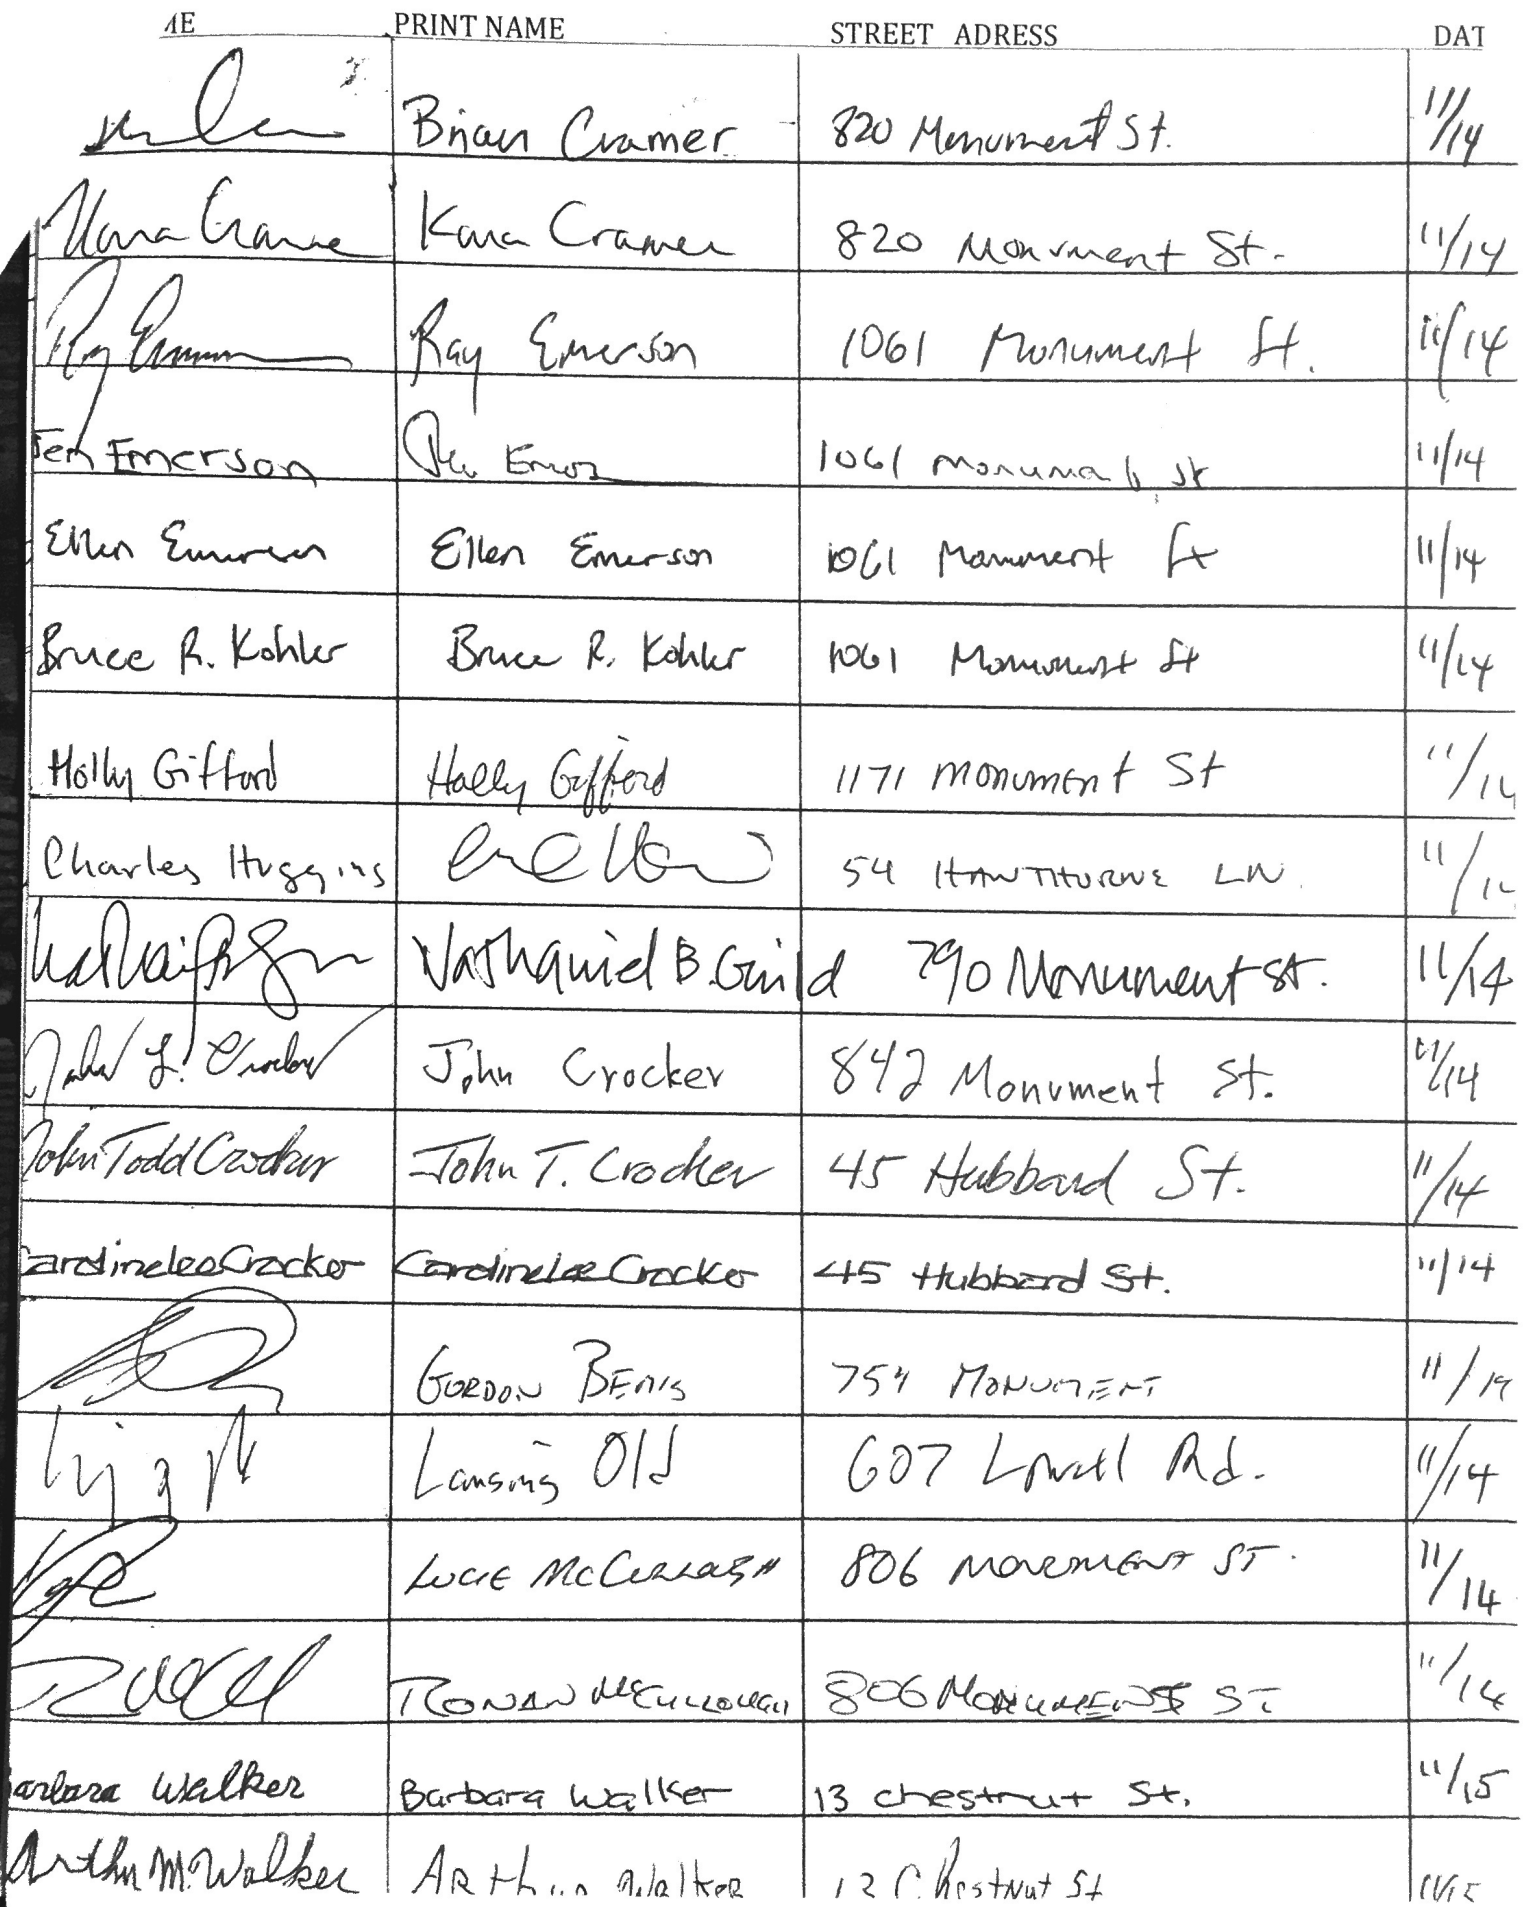 PRINT NAME STREET ADRESS
Brian Cramer 820 Monument St. 11/14
Kara Cramer 820 Monument St. 11/14
Ray Emerson Ray Emerson 1061 Monument St. 11/14
Emerson 1061 St 11/14
Ellen Emerson Ellen Emerson 1061 Monument St 11/14
Bruce R. Kohler Bruce R. Kohler 1061 Monument St 11/14
Holly Gifford Holly Gifford 1171 Monument St 11/14
Charles Huggins 54 HAWTHORNE LN 11/14
Nathaniel B. Guild 790 Monument St. 11/14
John L. Crocker John Crocker 842 Monument St. 11/14
John Todd Crocker John T. Crocker 45 Hubbard St. 11/14
Carolinelee Crocker Carolinelee Crocker 45 Hubbard St. 11/14
GORDON BEMIS 754 MONUMENT 11/14
Lansing Old 607 Lowell Rd. 11/14
806 MONUMENT ST. 11/14
RONAN McCULLOUGH 806 MONUMENT ST 11/14
Walker Barbara Walker 13 Chestnut St. 11/15
Arthur M. Walker Arthur Walker Chestnut St